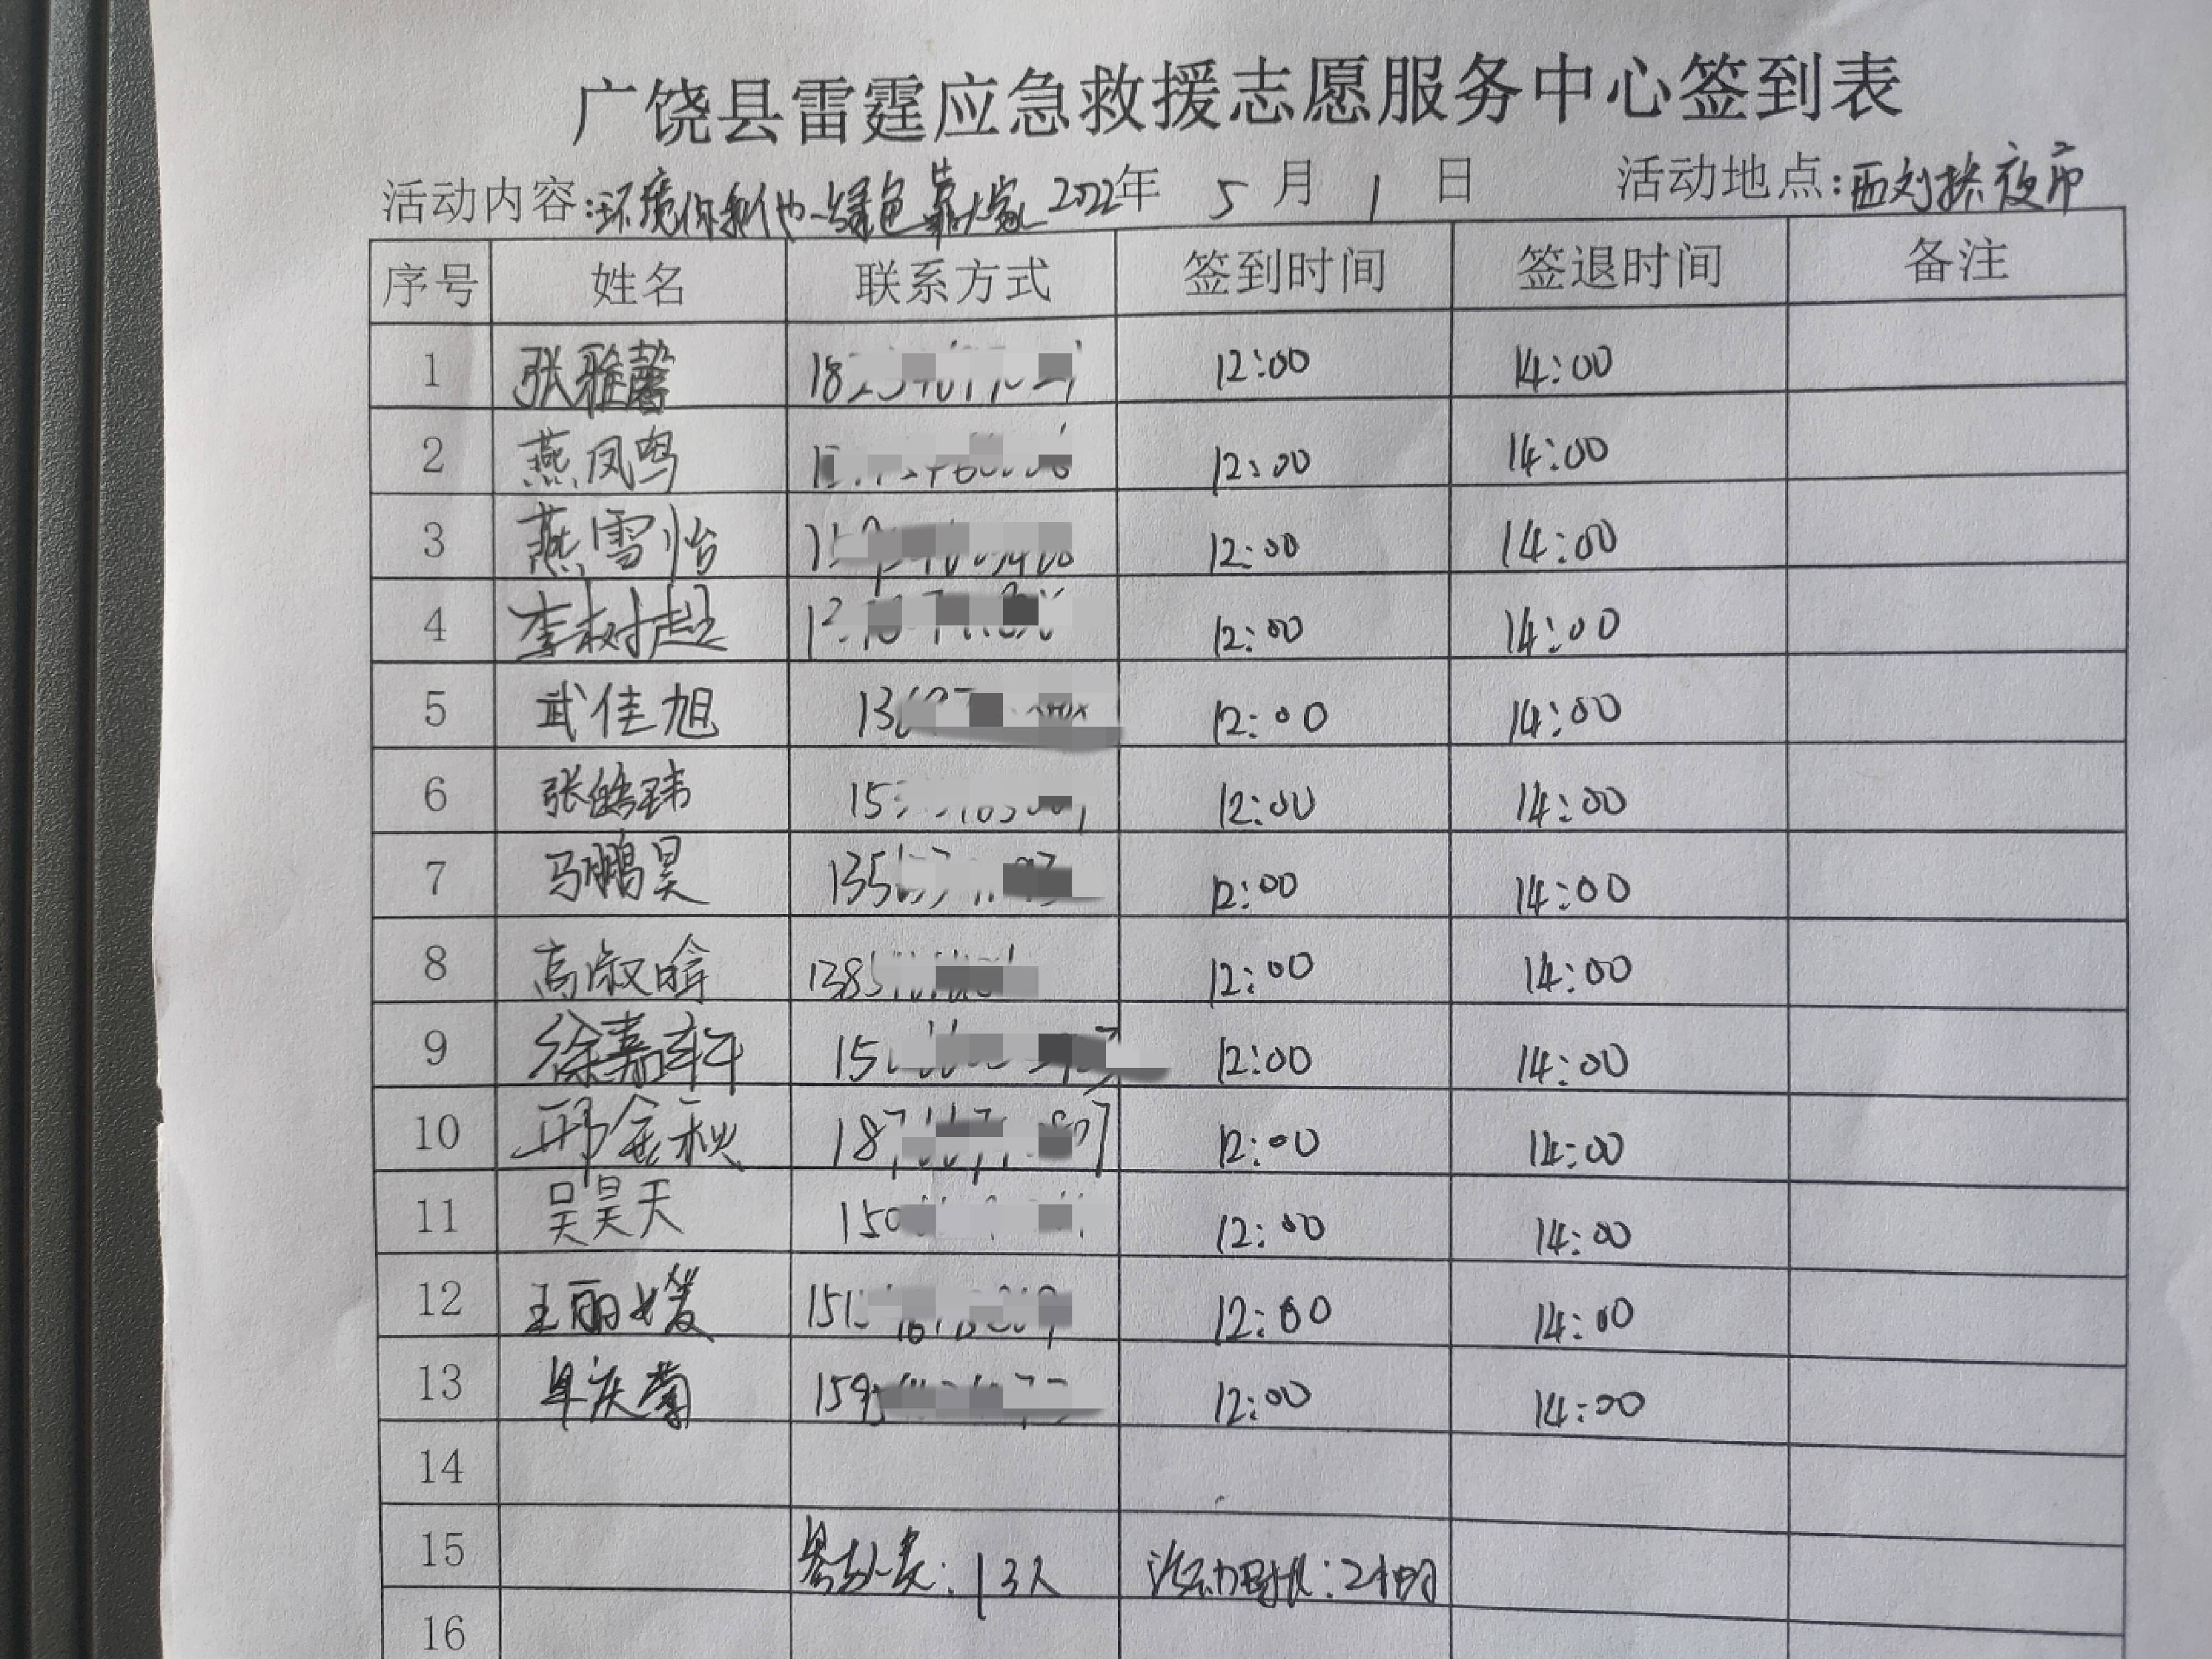 广饶县雷霆应急救援志愿服务中心签到表
活动内容:环境你我他 绿色靠大家 2022年 5 月 1 日 活动地点:西刘桥夜市
序号 姓名 联系方式 签到时间 签退时间 备注
1 张雅馨 18 12:00 14:00
2 燕凤鸣 12:00 14:00
3 燕雪怡 12:00 14:00
4 李树超 12:00 14:00
5 武佳旭 13 12:00 14:00
6 张皓玮 15 12:00 14:00
7 马鹏昊 135 12:00 14:00
8 高淑暄 1385 12:00 14:00
9 徐嘉轩 15 12:00 14:00
10 邢金秋 18 12:00 14:00
11 吴昊天 150 12:00 14:00
12 王丽媛 151 12:00 14:00
13 牟庆菊 159 12:00 14:00
14
15 参加人员:13人 活动时长:2小时
16